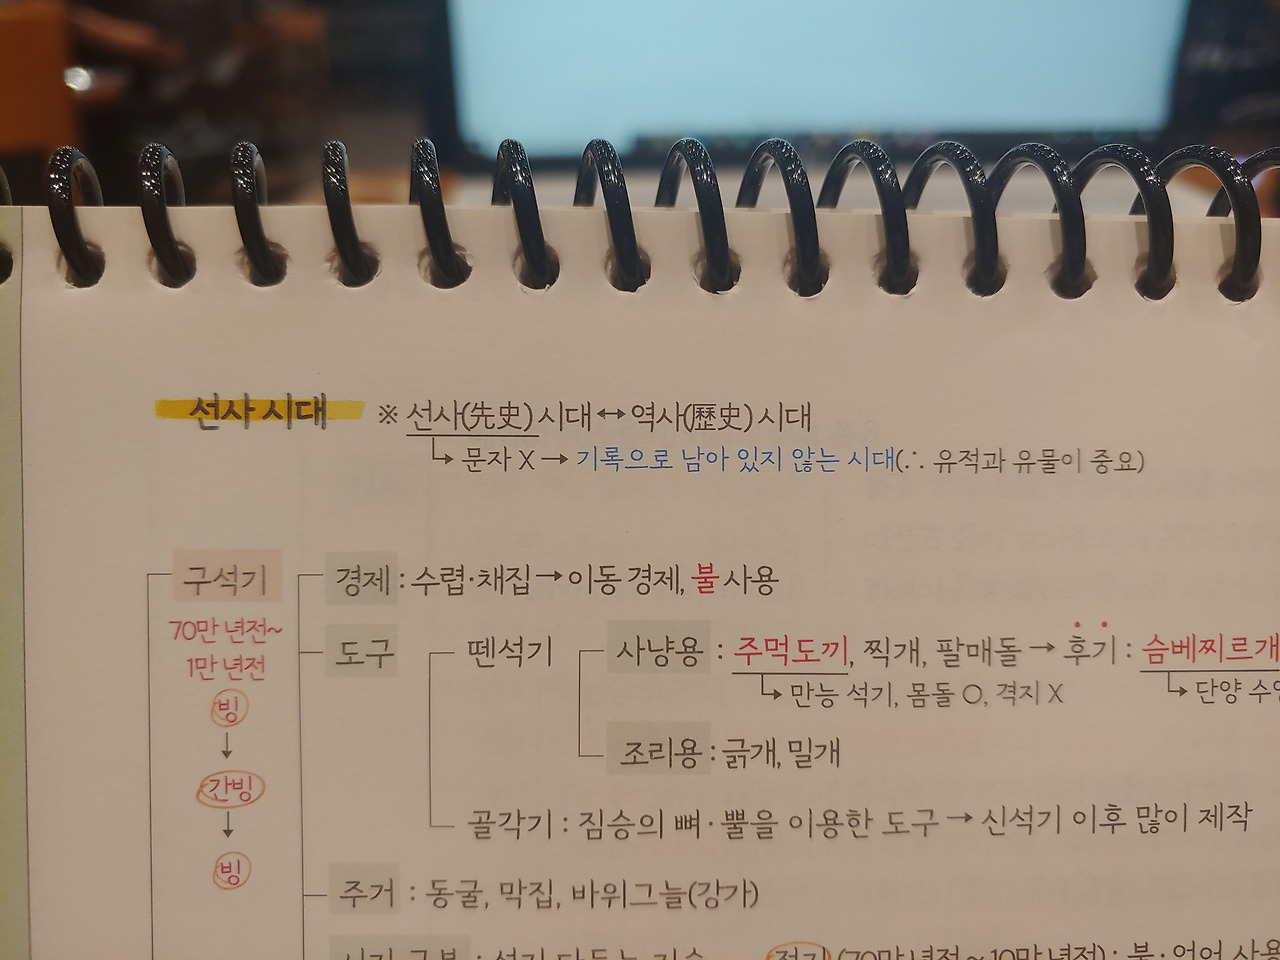 선사 시대 ※ 선사(先史) 시대 ↔ 역사(歷史) 시대
↳ 문자 X → 기록으로 남아 있지 않는 시대(∴ 유적과 유물이 중요)
구석기
70만 년전~
1만 년전
빙
↓
간빙
↓
빙
경제 : 수렵·채집 → 이동 경제, 불 사용
도구
뗀석기
사냥용 : 주먹도끼, 찍개, 팔매돌 → 후기 : 슴베찌르개
↳ 만능 석기, 몸돌 O, 격지 X
↳ 단양 수양
조리용 : 긁개, 밀개
골각기 : 짐승의 뼈·뿔을 이용한 도구 → 신석기 이후 많이 제작
주거 : 동굴, 막집, 바위그늘(강가)
시기 구분 : 석기 다듬는 기술
전기 (70만 년전 ~ 10만 년전) : 불·언어 사용